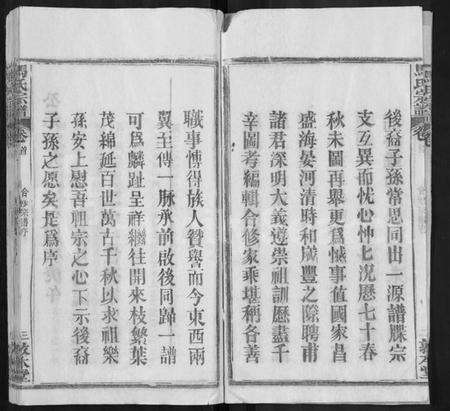 後裔子孫常思同出一源譜牒宗
支互異而忧心忡忡况歷七十春
秋未圖再舉更爲憾事值國家昌
盛海晏河清時和歲豐之際聘甫
諸君深明大義遵崇祖訓歷盡千
辛圖考編輯合修家乘堪稱各善
職事博得族人贊譽而今東西兩
翼主傳一脉承前啟後同歸一譜
可爲麟趾呈祥繼往開來枝繁葉
茂綿延百世萬古千秋以求祖樂
孫安上慰吾祖宗之心下示後裔
子孫之愿矣是爲序
馬氏宗譜
卷首